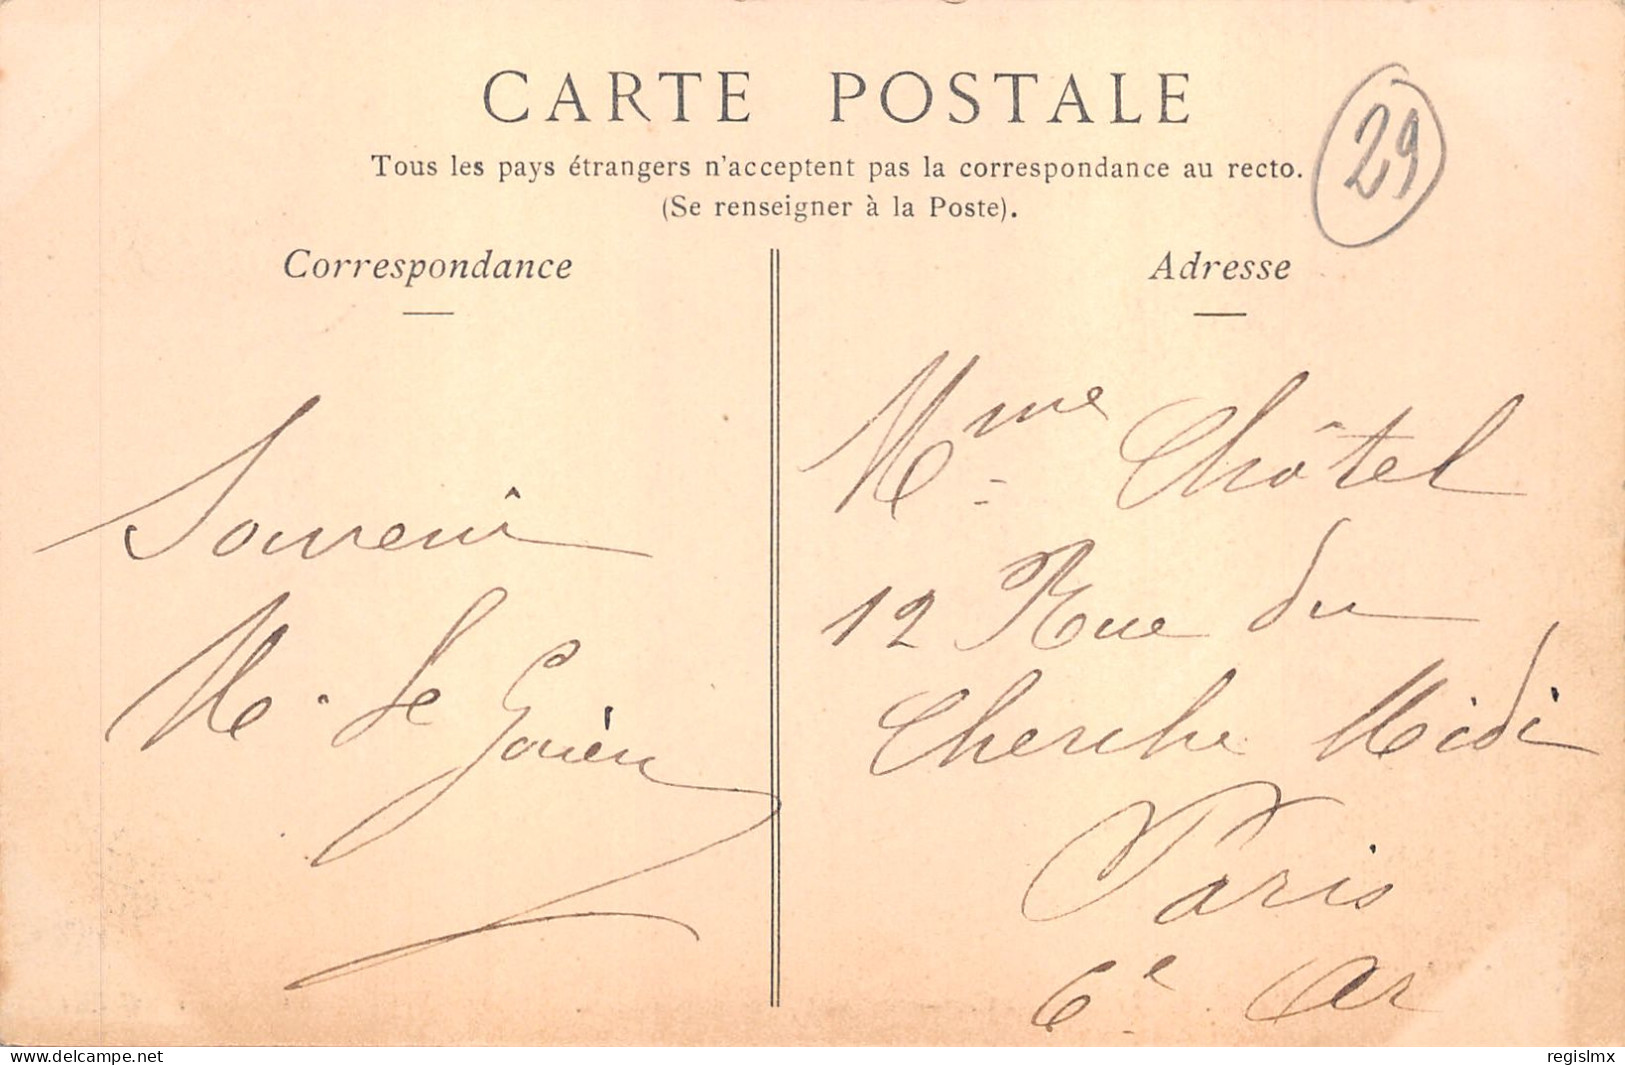 CARTE POSTALE
29
Tous les pays étrangers n'acceptent pas la correspondance au recto.
(Se renseigner à la Poste).
Correspondance
Adresse
Souvenir
M. Le Gouën
Mme Châtel
12 Rue du
Cherche Midi
Paris
6e Ar
www.delcampe.net
regislmx